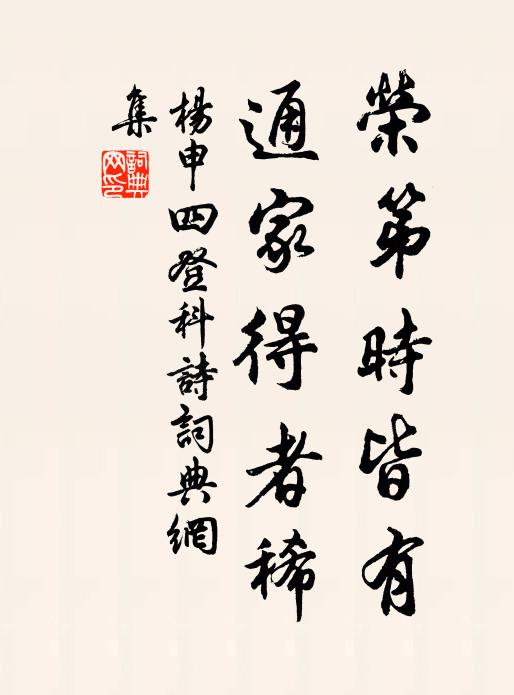 榮第時皆有
通家得者稀
楊申四登科詩詞典網
集
詞典
网印